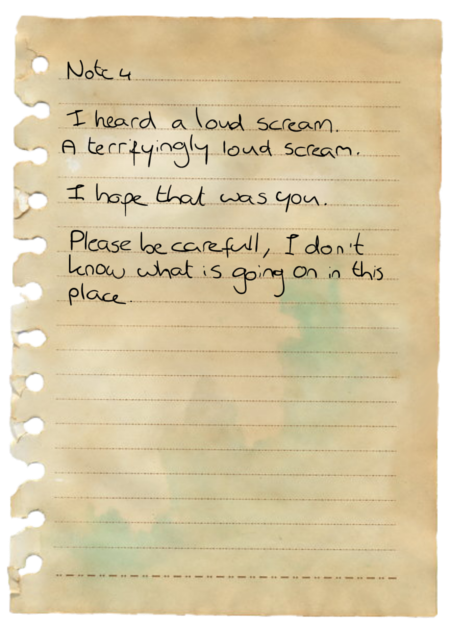 Note 4
I heard a loud scream.
A terrifyingly loud scream.
I hope that was you.
Please be carefull, I don't
know what is going on in this
place.